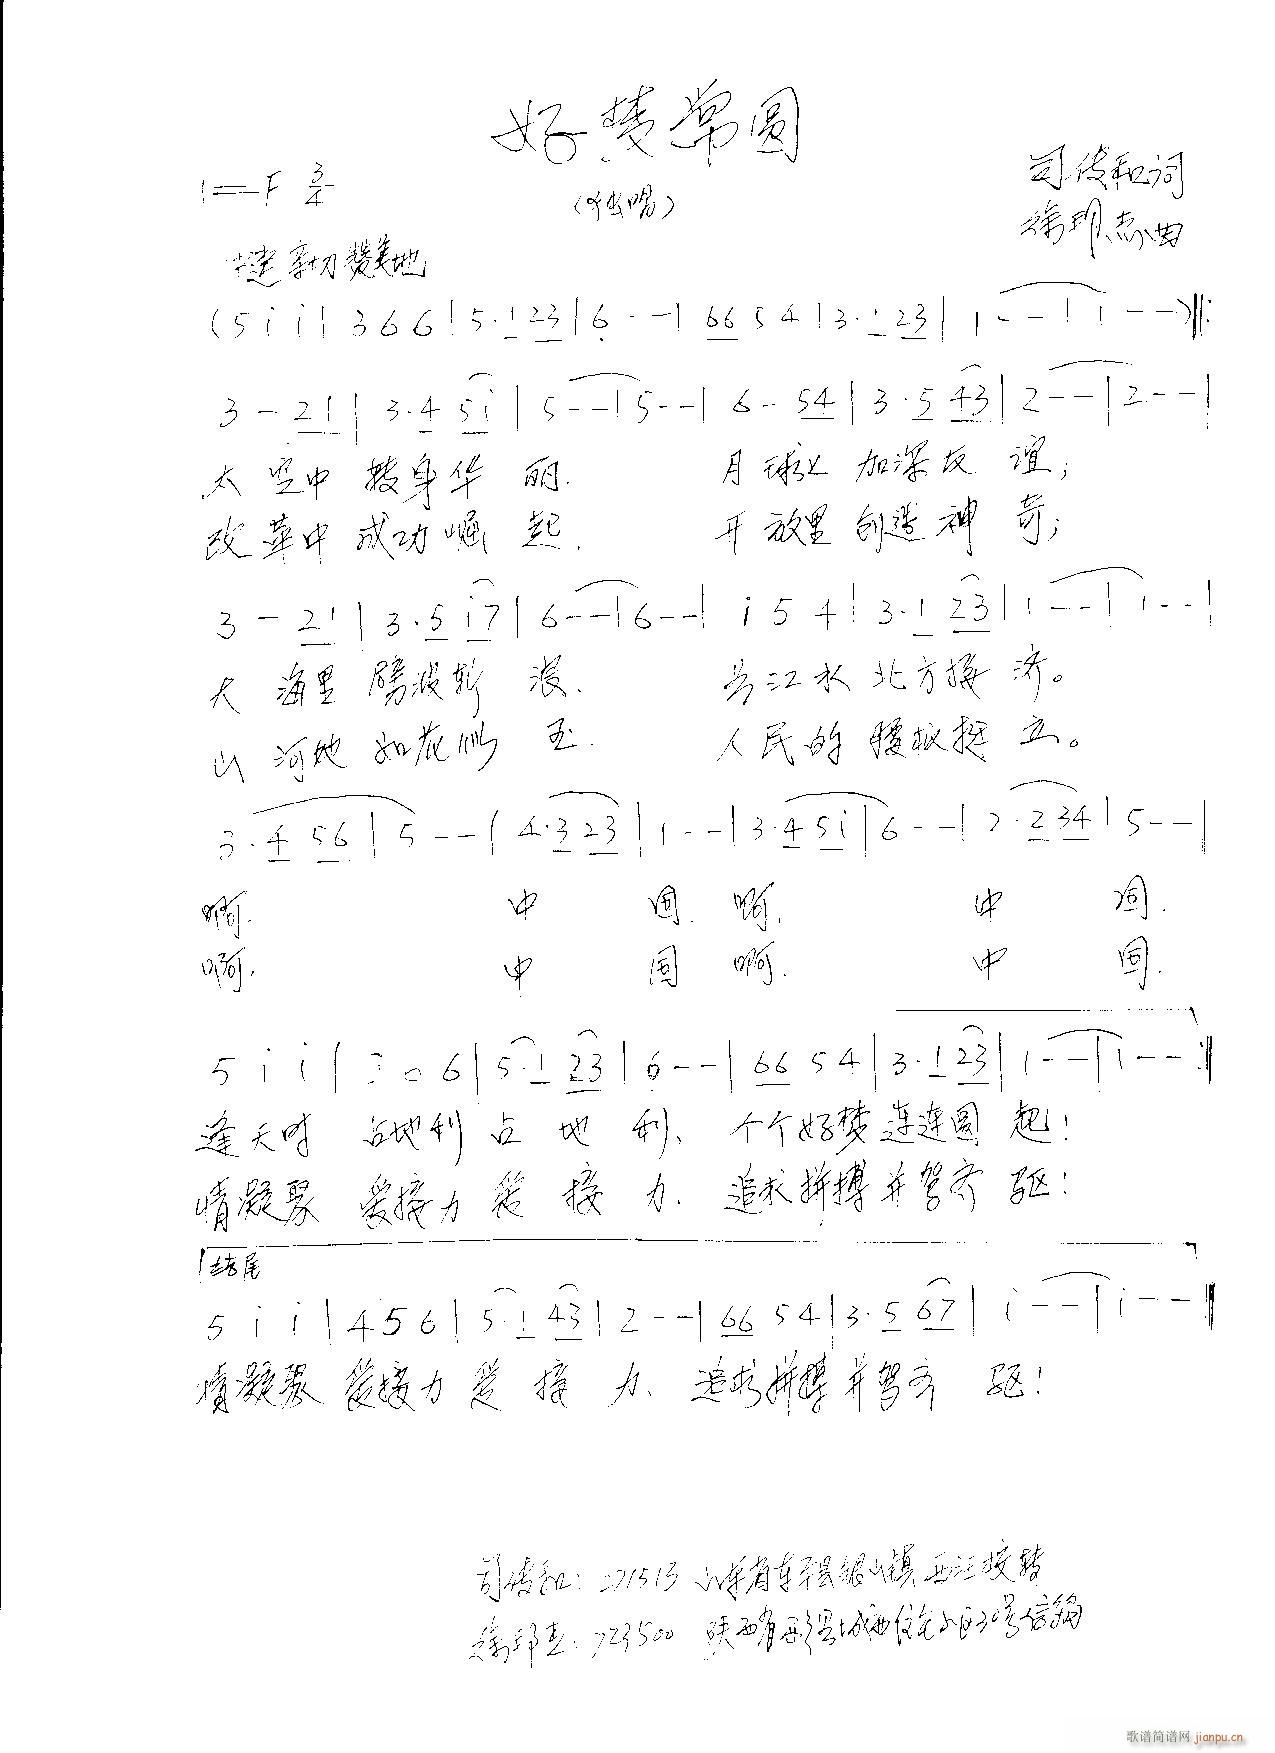 好梦常圆
1=F 3/4
(独唱)
司传和词
徐邦杰曲
中速 亲切 赞美地
(5 i i | 3 6 6 | 5·1 23 | 6 - - | 66 5 4 | 3·1 23 | 1 - - | 1 - -) ‖:
3 - 21 | 3·4 5i | 5 - - | 5 - - | 6 - 54 | 3·5 43 | 2 - - | 2 - - |
太空中 转身华丽. 月球上 加深友谊;
改革中 成功崛起. 开放里 创造神奇;
3 - 21 | 3·5 i7 | 6 - - | 6 - - | i 5 4 | 3·1 23 | 1 - - | 1 - - |
大海里 劈波斩浪. 长江水 北方接济。
山河地 如花似玉. 人民的 腰板挺立。
3·4 56 | 5 - - | 4·3 23 | 1 - - | 3·4 5i | 6 - - | 2·2 34 | 5 - - |
啊. 中国. 啊. 中国.
啊. 中国 啊. 中国.
5 i i | 3 6 6 | 5·1 23 | 6 - - | 66 5 4 | 3·1 23 | 1 - - | 1 - - :‖
逢天时 占地利 占地利、 个个好梦连连圆起!
情凝聚 爱接力 爱接力. 追求拼搏并驾齐驱!
结尾
5 i i | 4 5 6 | 5·1 43 | 2 - - | 66 5 4 | 3·5 67 | i - - | i - - ‖
情凝聚 爱接力 爱接力、 追求拼搏并驾齐驱!
司传和: 271513 山东省东平县银山镇西汪校转
徐邦杰: 723500 陕西省西乡县城西住宅小区30号信箱
歌谱简谱网 jianpu.cn